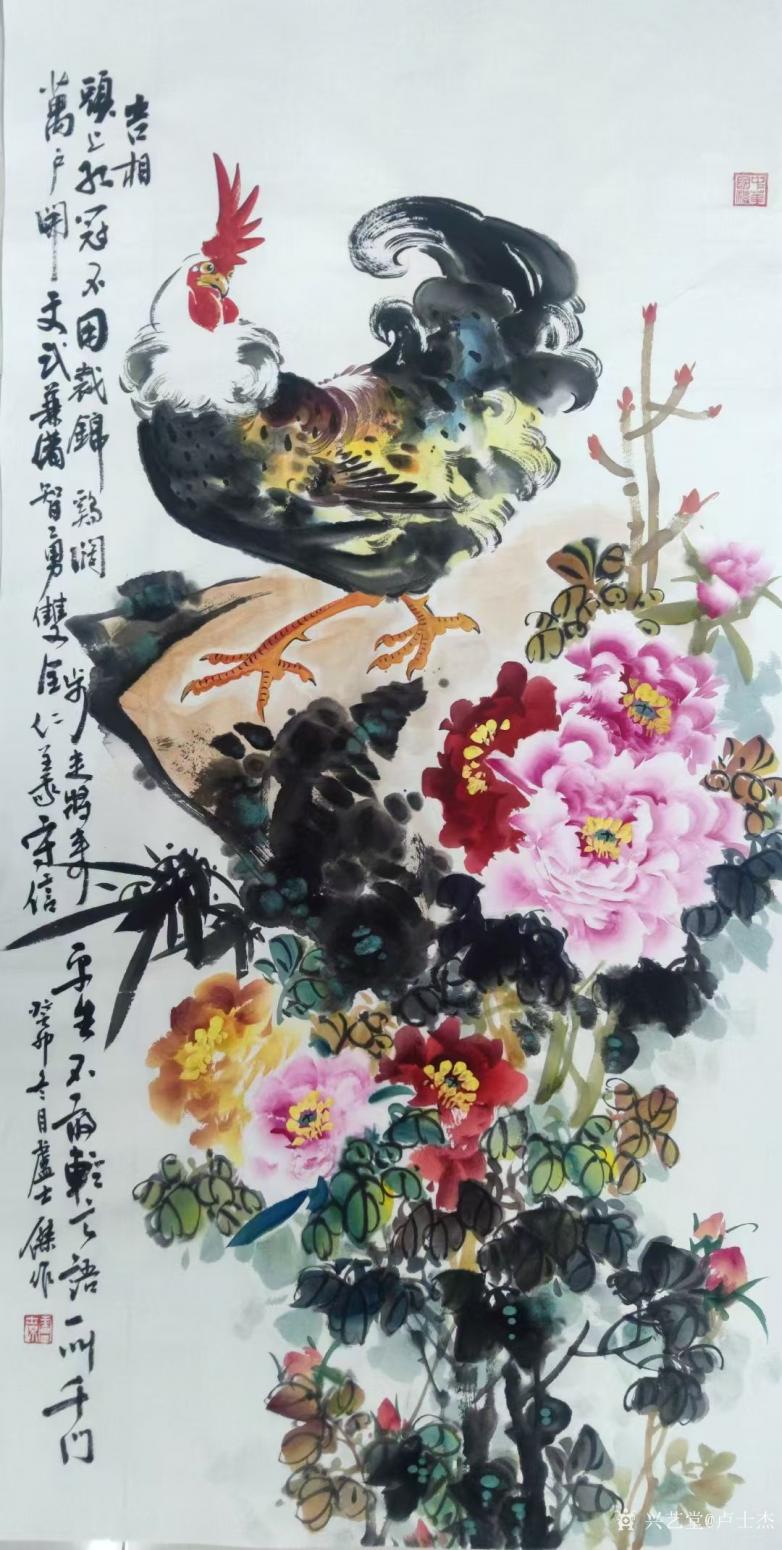 吉相
頭上红冠不用裁錦鷄阔步走將来平生不敢輕言語一叫千门
萬户開文武兼備智勇雙全仁義守信
癸卯冬月盧士傑作
兴艺堂@卢士杰